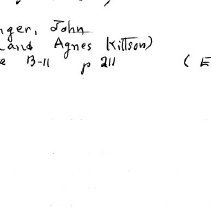 nger, John
and Agnes Kittson)
e B-11 p 211 ( E